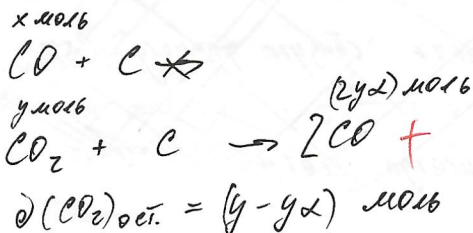 x моль
CO + C ↛
(2yα) моль
y моль
CO₂ + C → 2CO +
∂(CO₂)ост. = (y - yα) моль